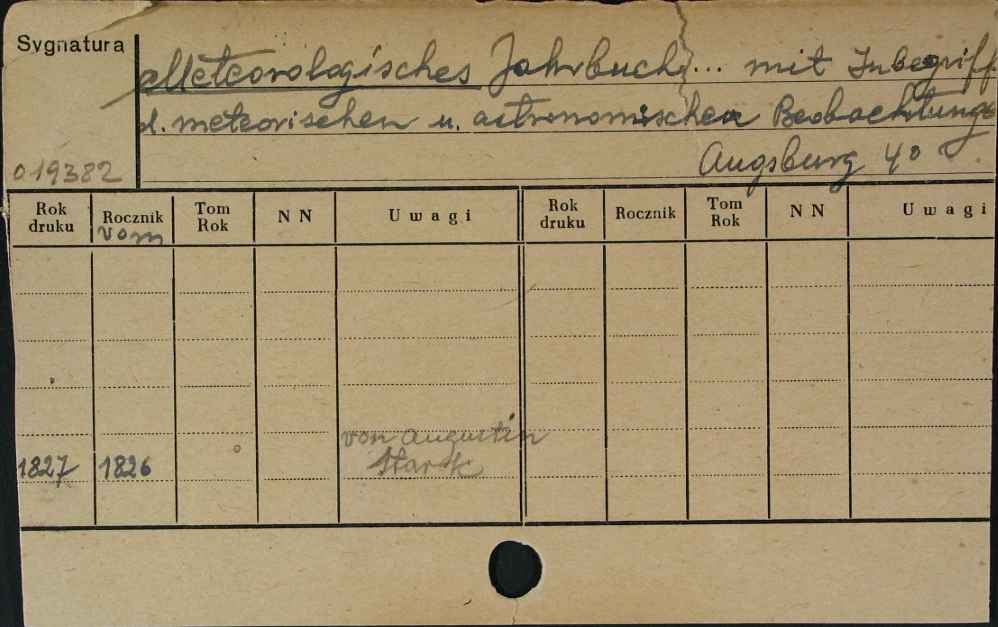 Sygnatura
Meteorologisches Jahrbuch ... mit Inbegriff
d. meteorischen u. astronomischen Beobachtunge
019382
Augsburg 4°
Rok druku Rocznik vom Tom Rok N N Uwagi Rok druku Rocznik Tom Rok N N Uwagi
von Augustin
1827 1826 Stark